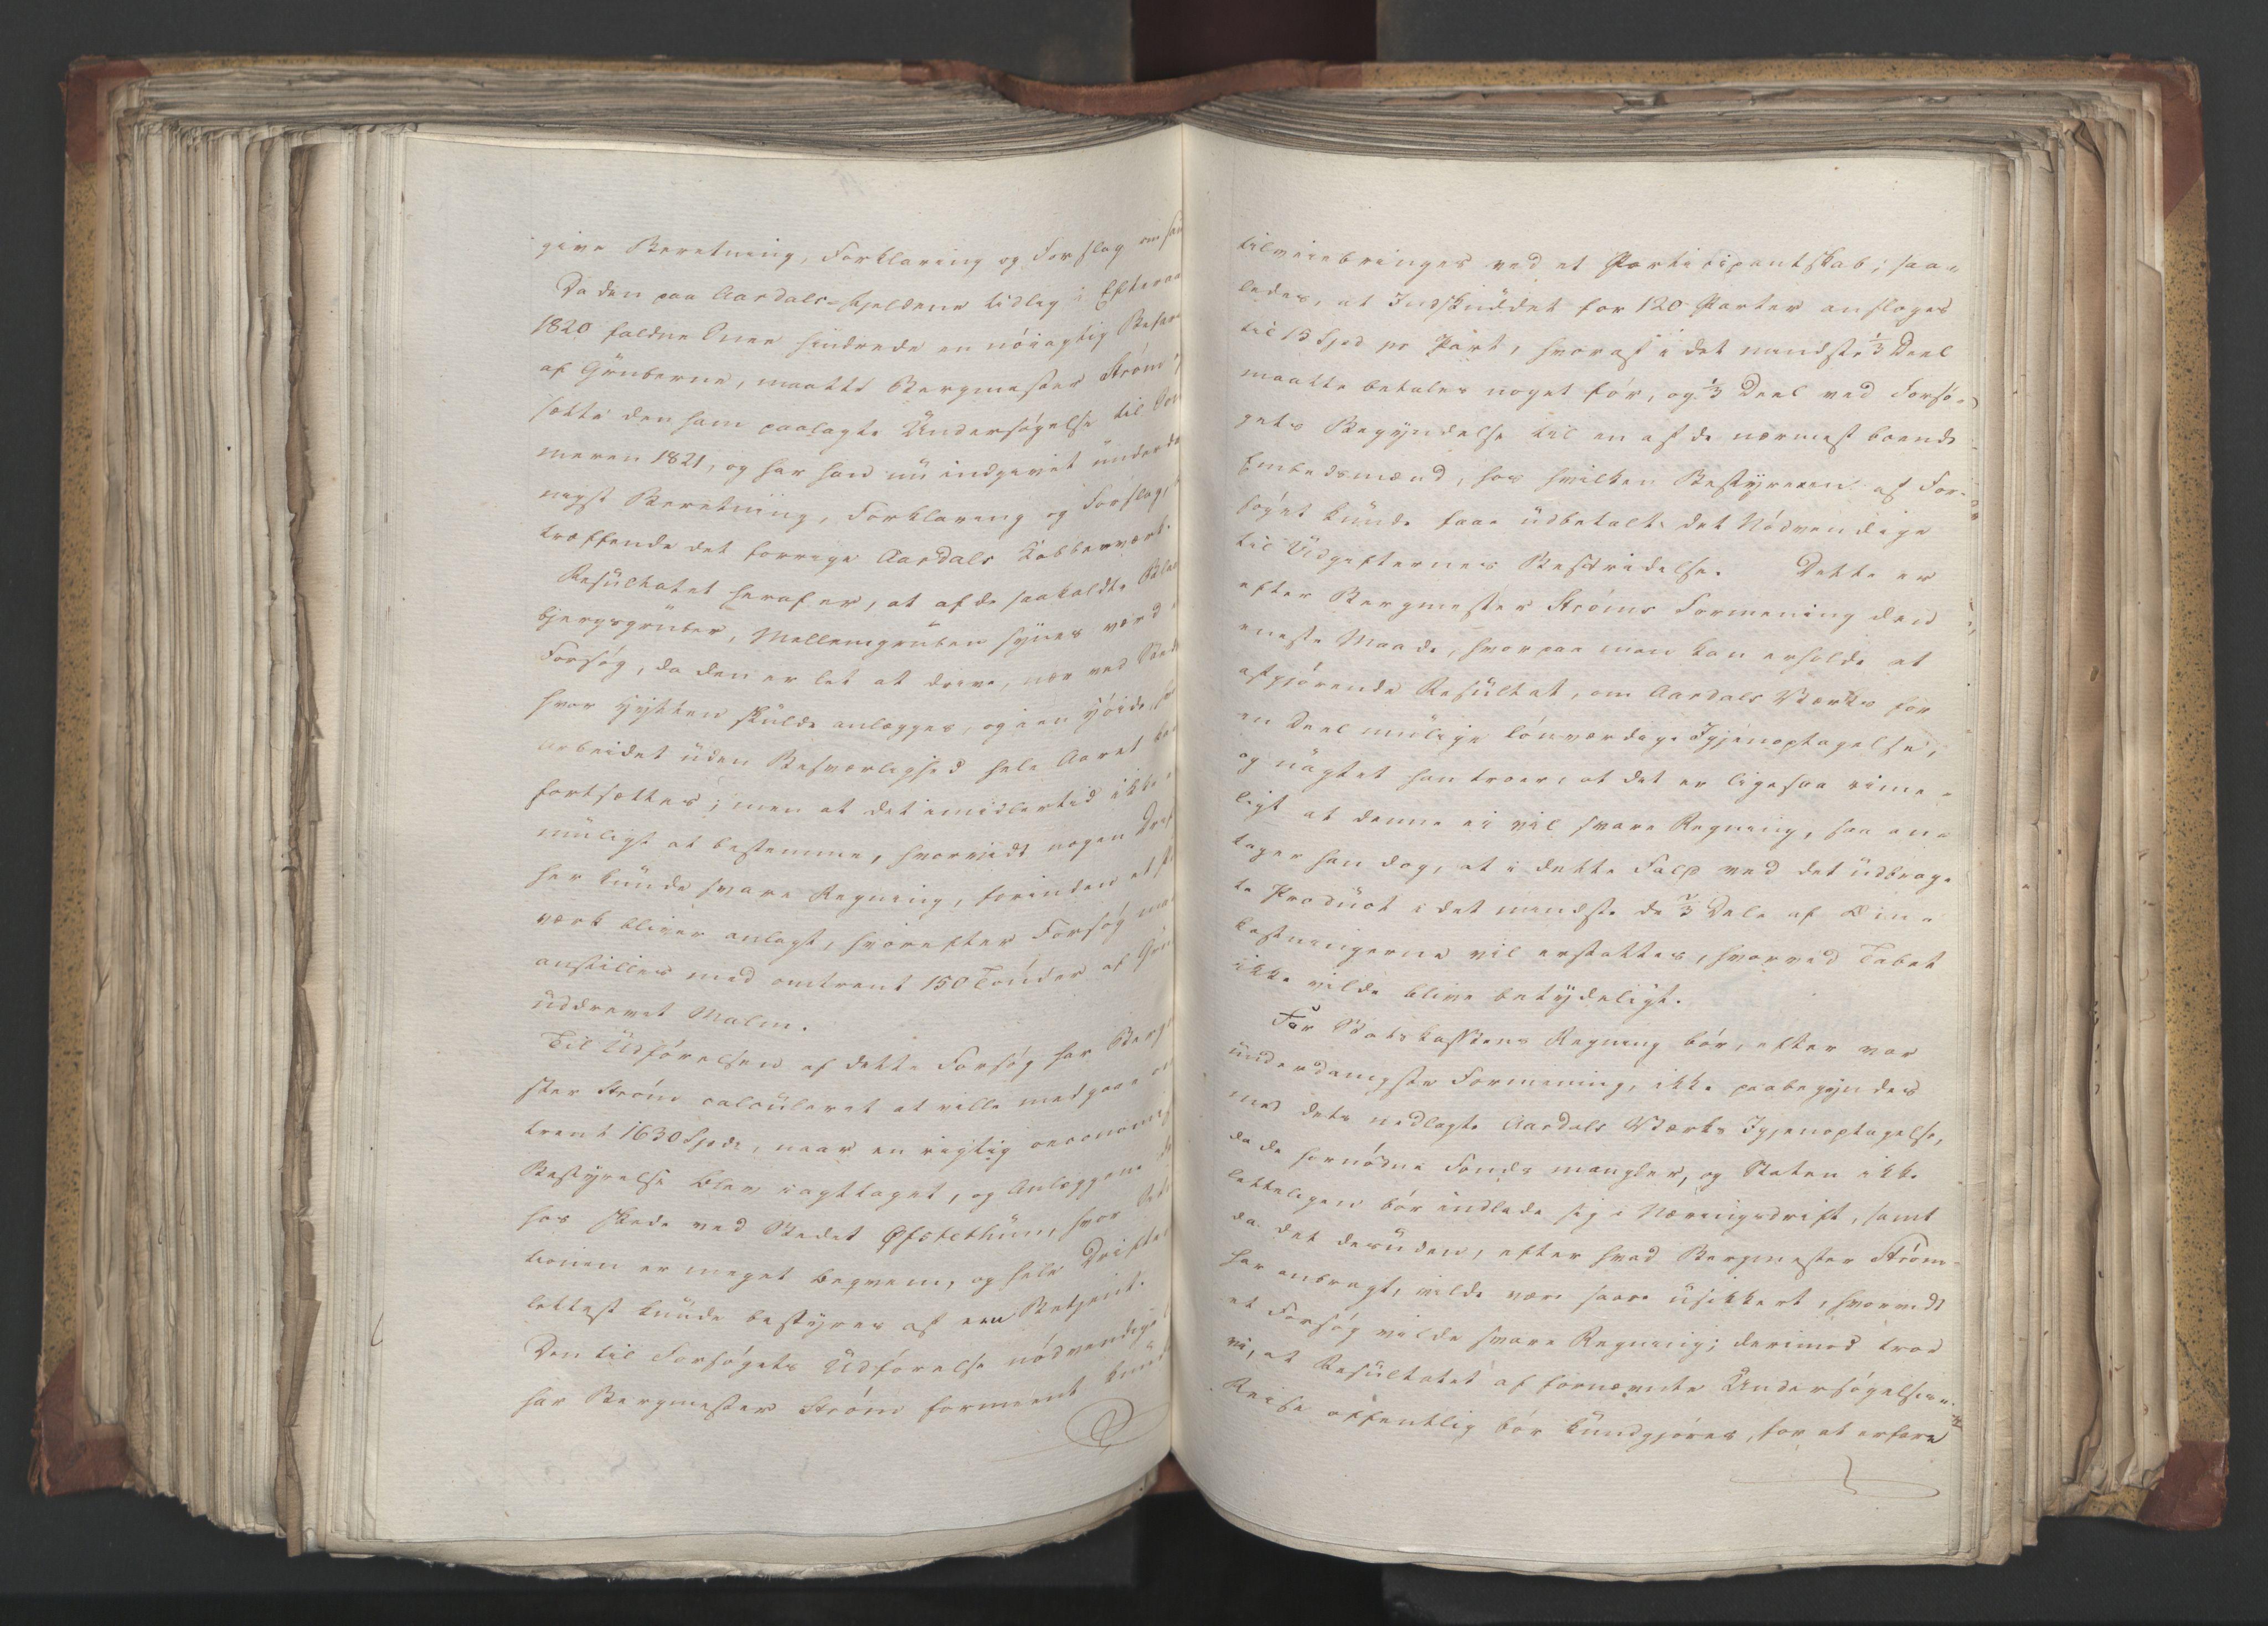 give Beretning, Forklaring og Forslag om saa
Da den paa Aardals-Fjeldene tidlig i Efteraa
1820 faldne Snee hindrede en nøiagtig Befar
af Gruberne, maatte Bergmester Strøm
sætte den ham paalagte Undersøgelse til Som
meren 1821, og har han nu indgivet underda
nigst Beretning, Forklaring og Forslag,
træffende det forrige Aardals Kobberværk.
Resultatet heraf er, at af de saakaldte Blaa
bjergsgruber, Mellemgruben synes værd
Forsøg, da den er let at drive, nær ved Sted
hvor Hytten skulde anlægges, og i en Høide, hvor
Arbeidet uden Besværlighed hele Aaret kan
fortsættes; men at det imidlertid ikke
muligt at bestemme, hvorvidt nogen Drif
her kunde svare Regning, forinden et
værk bliver anlagt, hvorefter Forsøg maa
anstilles med omtrent 150 Tønder af Gru
uddrevet Malm.
Til Udførelsen af dette Forsøg har Berg
ster Strøm calculeret at ville medgaae om
trent 1630 Spd, naar en rigtig oeconomi
Bestyrelse blev iagttaget, og Anlæggene
hos skede ved Stedet Ofstethun, hvor Situa
tionen er meget beqvem, og hele Driften
lettest kunde bestyres af een Betjent.
Den til Forsøgets Udførelse nødvendige
har Bergmester Strøm formeent kunde
tilveiebringes ved et Participantskab; saa-
ledes, at Indskuddet for 120 Parter ansloges
til 15 Spd pr Part, hvoraf i det mindste 1/3 Deel
maatte betales noget før, og 1/3 Deel ved Forsø-
gets Begyndelse til en af de nærmest boende
Embedsmænd, hos hvilken Bestyreren af For-
søget kunde faae udbetalt det Nødvendige
til Udgifternes Bestridelse. Dette er
efter Bergmester Strøms Formening den
eneste Maade, hvorpaa man kan erholde et
afgjørende Resultat, om Aardals Værks for
en Deel mulige lønværdige Igjenoptagelse,
og uagtet han troer, at det er ligesaa rime-
ligt at denne ei vil svare Regning, saa an-
tager han dog, at i dette Fald ved det udbrag-
te Product i det mindste de 2/3 Dele af Om-
kostningerne vil erstattes, hvorved Tabet
ikke vilde blive betydeligt.
For Statskassens Regning bør, efter vor
underdanigste Formening, ikke paabegyndes
med dette nedlagte Aardals Værks Igjenoptagelse,
da de fornødne Fonds mangler, og Staten ikke
lettelegen bør indlade sig i Næringsdrift, samt
da det desuden, efter hvad Bergmester Strøm
har anbragt, vilde være saare usikkert, hvorvidt
et Forsøg vilde svare Regning; derimod troe
vi, at Resultatet af fornævnte Undersøgelses-
Reise offentlig bør kundgjøres, for at erfare